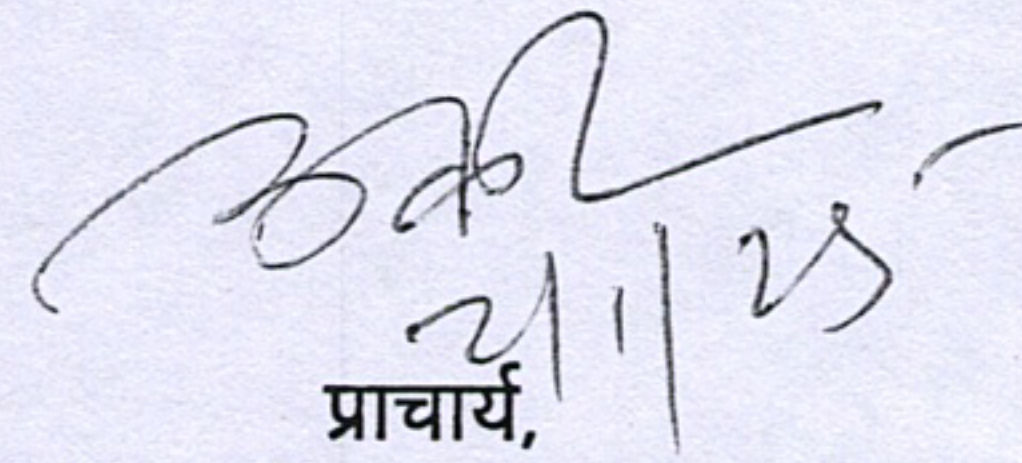 2/1/25
प्राचार्य,